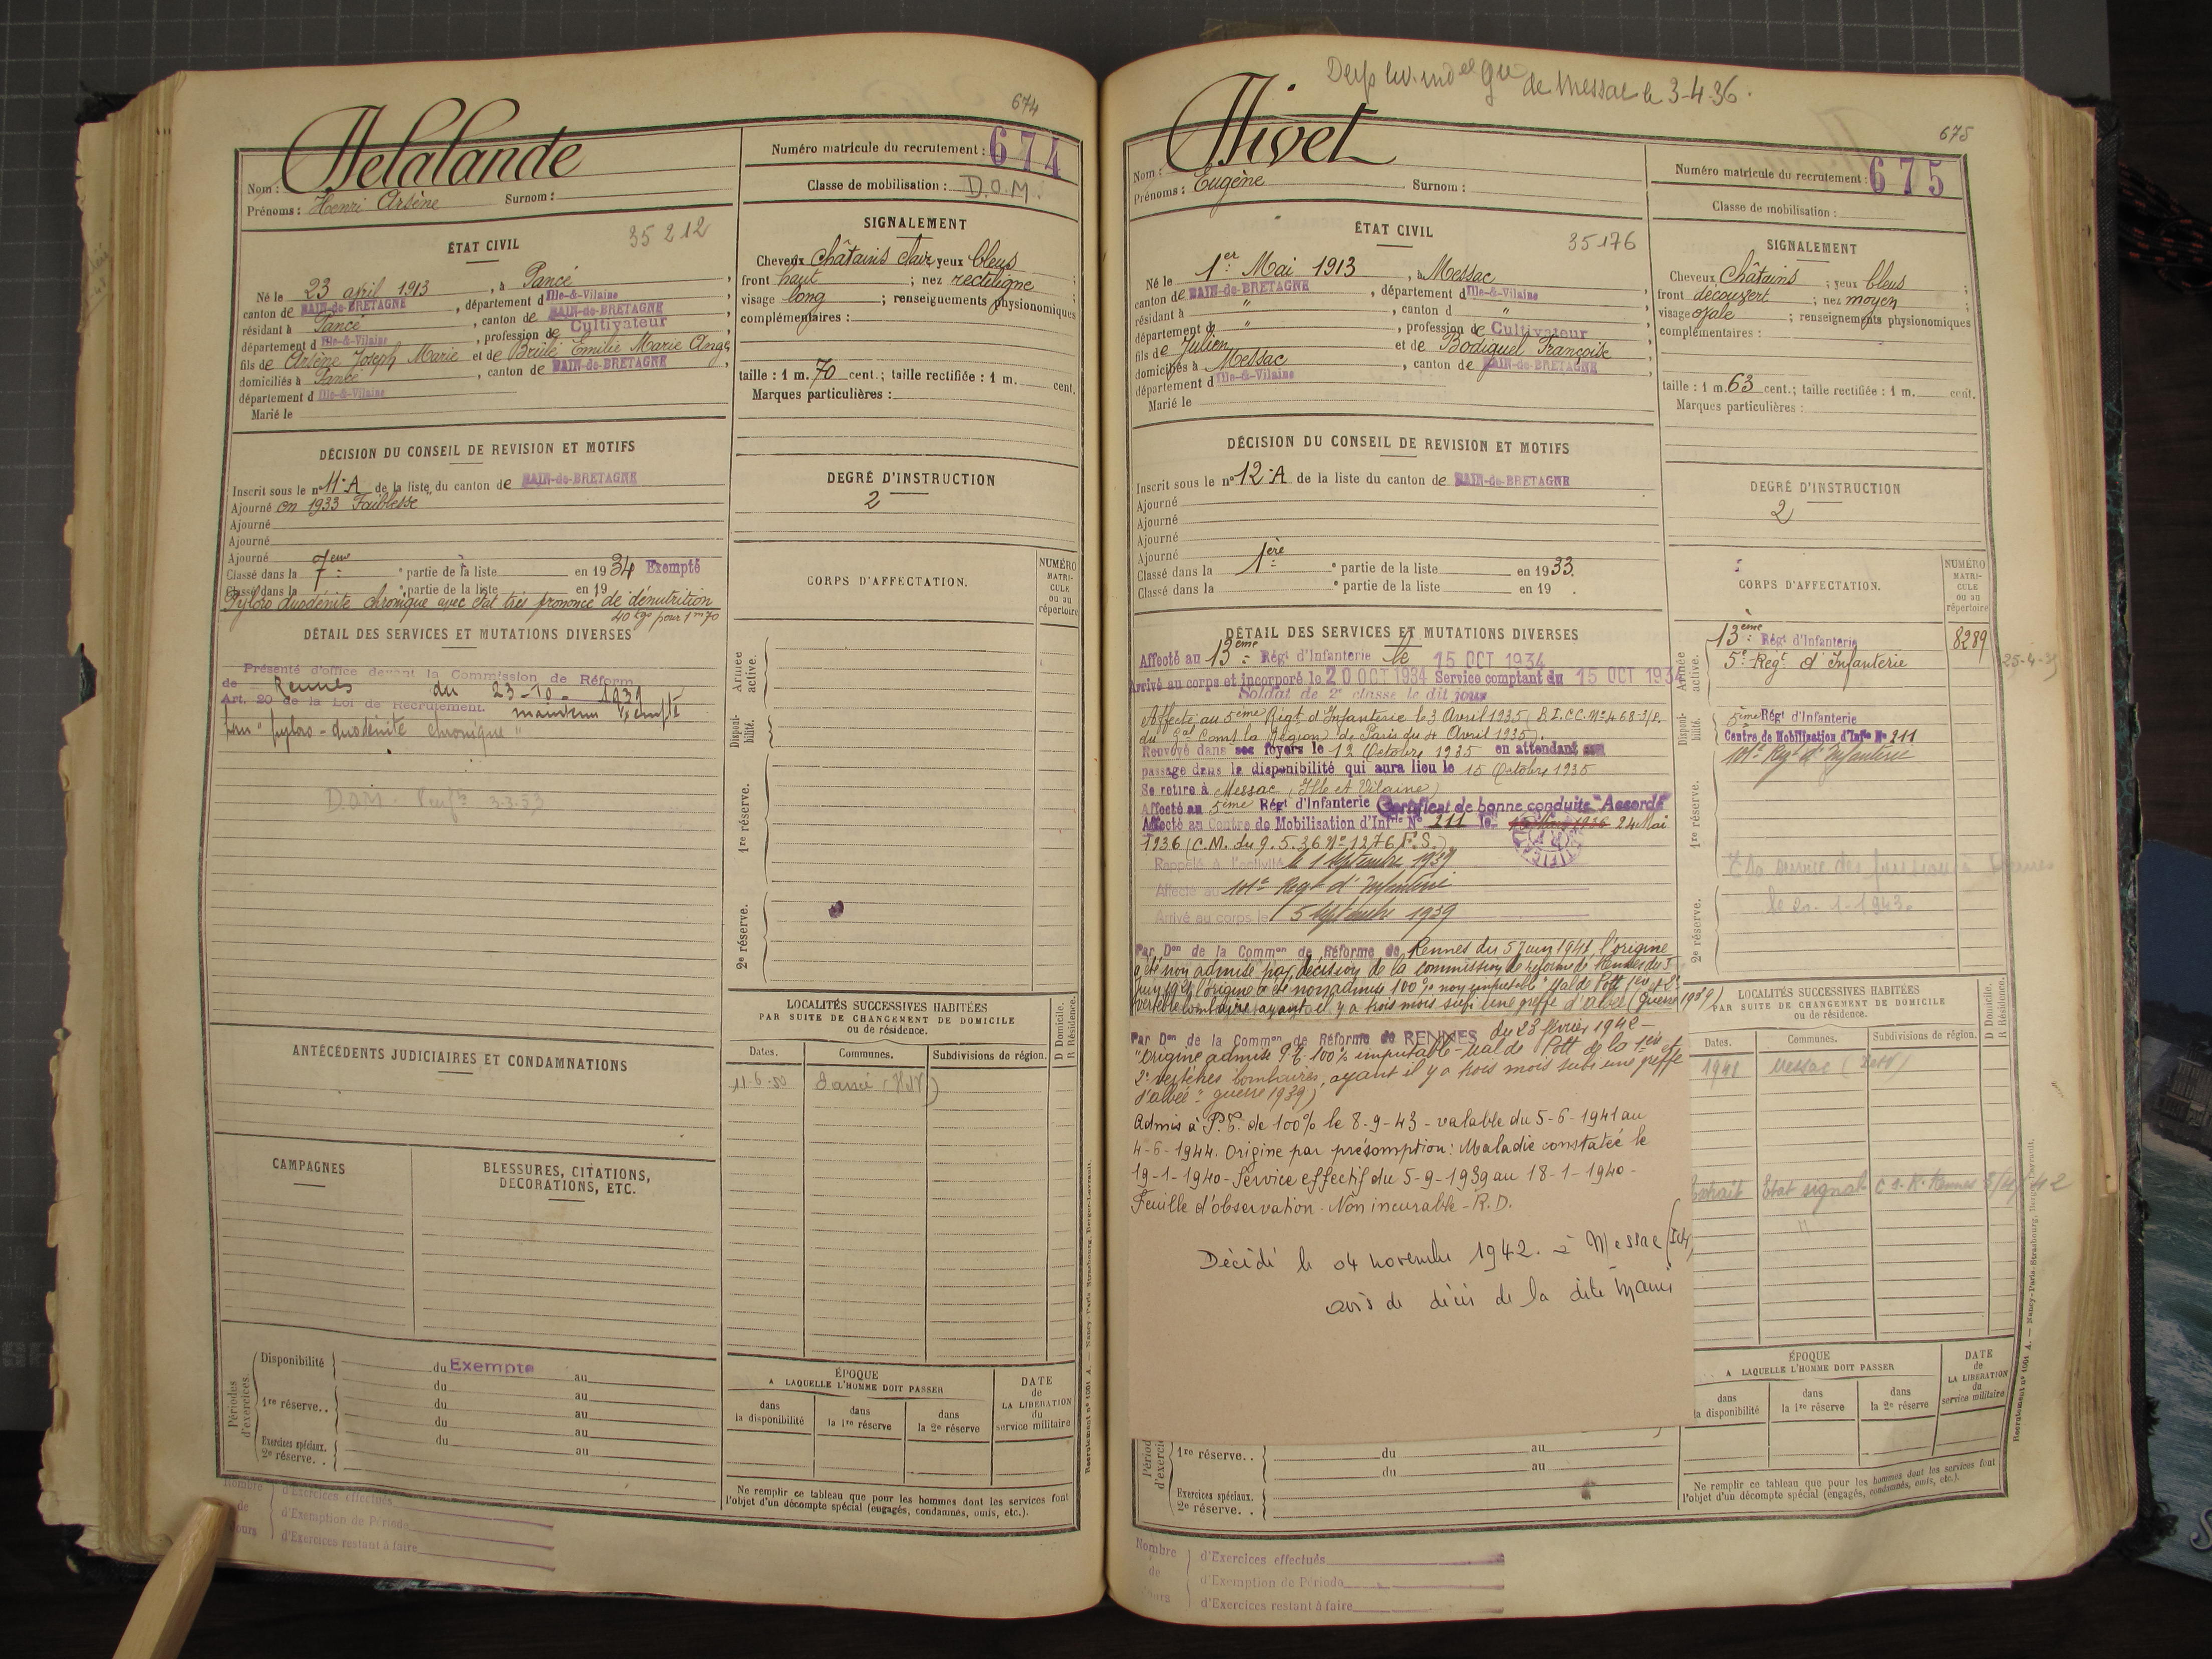 674
Delalande
Nom :
Prénoms : Henri Arsène Surnom :
Numéro matricule du recrutement : 674
Classe de mobilisation : D.O.M.
ÉTAT CIVIL
35 212
Né le 23 avril 1913, à Pancé,
canton de BAIN-de-BRETAGNE, département d Ille-&-Vilaine
résidant à Pancé, canton de BAIN-de-BRETAGNE
département d Ille-&-Vilaine, profession de Cultivateur
fils de Arsène Joseph Marie et de Brulé Emilie Marie Ange,
domiciliés à Pancé, canton de BAIN-de-BRETAGNE,
département d Ille-&-Vilaine
Marié le
SIGNALEMENT
Cheveux Châtains clair yeux bleus ;
front haut ; nez rectiligne ;
visage long ; renseignements physionomiques
complémentaires :
taille : 1 m. 70 cent. ; taille rectifiée : 1 m. cent.
Marques particulières :
DÉCISION DU CONSEIL DE REVISION ET MOTIFS
Inscrit sous le n° 11·A de la liste du canton de BAIN-de-BRETAGNE
Ajourné en 1933 "Faiblesse"
Ajourné
Ajourné
Ajourné
Classé dans la 7eme partie de la liste en 1934 Exempté
Classé dans la partie de la liste en 19
Pyloro duodénite chronique avec état très prononcé de dénutrition
40 kgs pour 1m70
DEGRÉ D'INSTRUCTION
2
DÉTAIL DES SERVICES ET MUTATIONS DIVERSES
Présenté d'office devant la Commission de Réform
de Rennes du 23-10-1939
Art. 20 de la Loi de Recrutement. maintenu Exempté
pour "pyloro-duodénite chronique"
D.O.M.
CORPS D'AFFECTATION.
NUMÉRO MATRI-CULE ou au répertoire
Armée active.
Disponi-bilité.
1re réserve.
2e réserve.
ANTÉCÉDENTS JUDICIAIRES ET CONDAMNATIONS
LOCALITÉS SUCCESSIVES HABITÉES
PAR SUITE DE CHANGEMENT DE DOMICILE
ou de résidence.
D Domicile.
R Résidence.
Dates. Communes. Subdivisions de région.
CAMPAGNES
BLESSURES, CITATIONS,
DÉCORATIONS, ETC.
Périodes d'exercices.
Disponibilité du Exempté au
du au
1re réserve.. du au
du au
Exercices spéciaux.
2e réserve. . du au
ÉPOQUE
A LAQUELLE L'HOMME DOIT PASSER
dans la disponibilité dans la 1re réserve dans la 2e réserve
DATE de LA LIBÉRATION du service militaire
Ne remplir ce tableau que pour les hommes dont les services font
l'objet d'un décompte spécial (engagés, condamnés, omis, etc.).
Nombre de jours
d'Exercices effectués
d'Exemption de Période
d'Exercices restant à faire
Recrutement n° 1001 A. — Nancy-Paris-Strasbourg, Berger-Levrault.
de Messac le 3-4-36.
675
Hivet
Nom :
Prénoms : Eugène Surnom :
Numéro matricule du recrutement : 675
Classe de mobilisation :
ÉTAT CIVIL
35176
Né le 1er Mai 1913, à Messac,
canton de BAIN-de-BRETAGNE, département d Ille-&-Vilaine
résidant à ", canton d "
département d ", profession de Cultivateur
fils de Julien et de Bodiguel Françoise
domiciliés à Messac, canton de BAIN-de-BRETAGNE,
département d Ille-&-Vilaine
Marié le
SIGNALEMENT
Cheveux Châtains ; yeux bleus ;
front découvert ; nez moyen ;
visage ovale ; renseignements physionomiques
complémentaires :
taille : 1 m. 63 cent. ; taille rectifiée : 1 m. cent.
Marques particulières :
DÉCISION DU CONSEIL DE REVISION ET MOTIFS
Inscrit sous le n° 12·A de la liste du canton de BAIN-de-BRETAGNE
Ajourné
Ajourné
Ajourné
Ajourné
Classé dans la 1ère partie de la liste en 1933.
Classé dans la partie de la liste en 19 .
DEGRÉ D'INSTRUCTION
2
DÉTAIL DES SERVICES ET MUTATIONS DIVERSES
Affecté au 13ème Régt d'Infanterie le 15 OCT 1934
Arrivé au corps et incorporé le 20 OCT 1934 Service comptant du 15 OCT 1934
Soldat de 2e classe le dit jour
Affecté au 5ème Régt d'Infanterie le 3 Avril 1935
du Gal Comt la Région de Paris du 4 Avril 1935).
Renvoyé dans ses foyers le 12 Octobre 1935 en attendant son
passage dans la disponibilité qui aura lieu le 15 Octobre 1935
Se retire à Messac (Ille et Vilaine)
Affecté au 5ème Régt d'Infanterie Certificat de bonne conduite "Accordé"
Affecté au Centre de Mobilisation d'Infie N° 211 le 24 Mai
1936 (C.M. du 9.5.36 N° 1276 F.S.)
Rappelé à l'activité le 1 Septembre 1939
Affecté au 101e Regt d'Infanterie
Arrivé au corps le 5 Septembre 1939
Par Don de la Common de Réforme de Rennes du 5 Juin 1941 l'origine
a été non admise par décision de la commission de réforme de Rennes du 5
juin 1941 l'origine a été non admise 100% non imputable "Mal de Pott 1ère et 2e
vertèbre lombaire, ayant il y a trois mois subi une greffe d'albée (guerre 1939)
Par Don de la Common de Réforme de RENNES du 23 février 1942 -
"Origine admise P.T. 100% imputable - Mal de Pott de la 1ère et
2e vertèbres lombaires, ayant il y a trois mois subi une greffe
d'albée" guerre 1939)
Admis à P.T. de 100% le 8-9-43 - valable du 5-6-1941 au
4-6-1944. Origine par présomption : Maladie constatée le
19-1-1940 - Service effectif du 5-9-1939 au 18-1-1940 -
Feuille d'observation - Non incurable - R.D.
Décédé le 04 novembre 1942. à Messac (I et V)
avis de décès de la dite mairie
CORPS D'AFFECTATION.
NUMÉRO MATRI-CULE ou au répertoire
Armée active.
13ème Régt d'Infanterie 8289
5e Regt d'Infanterie
Disponi-bilité.
5ème Régt d'Infanterie
Centre de Mobilisation d'Infie N° 211
101e Regt d'Infanterie
1re réserve.
2e réserve.
LOCALITÉS SUCCESSIVES HABITÉES
PAR SUITE DE CHANGEMENT DE DOMICILE
ou de résidence.
D Domicile.
R Résidence.
Dates. Communes. Subdivisions de région.
1941 Messac
ÉPOQUE
A LAQUELLE L'HOMME DOIT PASSER
dans la disponibilité dans la 1re réserve dans la 2e réserve
DATE de LA LIBÉRATION du service militaire
1re réserve.. du au
du au
Exercices spéciaux.
2e réserve. .
Ne remplir ce tableau que pour les hommes dont les services font
l'objet d'un décompte spécial (engagés, condamnés, omis, etc.).
Nombre de jours
d'Exercices effectués
d'Exemption de Période
d'Exercices restant à faire
Recrutement n° 1001 A. — Nancy-Paris-Strasbourg, Berger-Levrault.